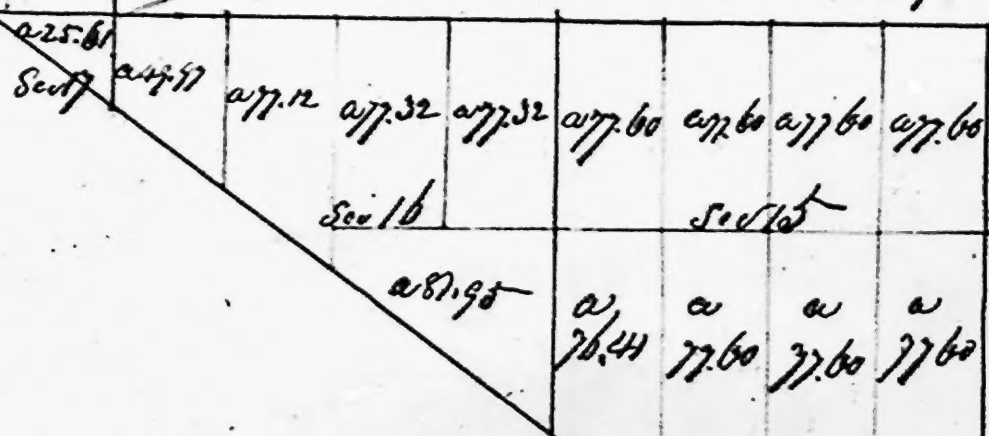 a 25.61
Sec 17
a 49.97
a 77.12
a 77.32
a 77.32
a 77.60
a 77.60
a 77 60
a 77.60
Sec 16
Sec 15
a 87.95
a 76.41
a 77.60
a 77.60
a 77 60